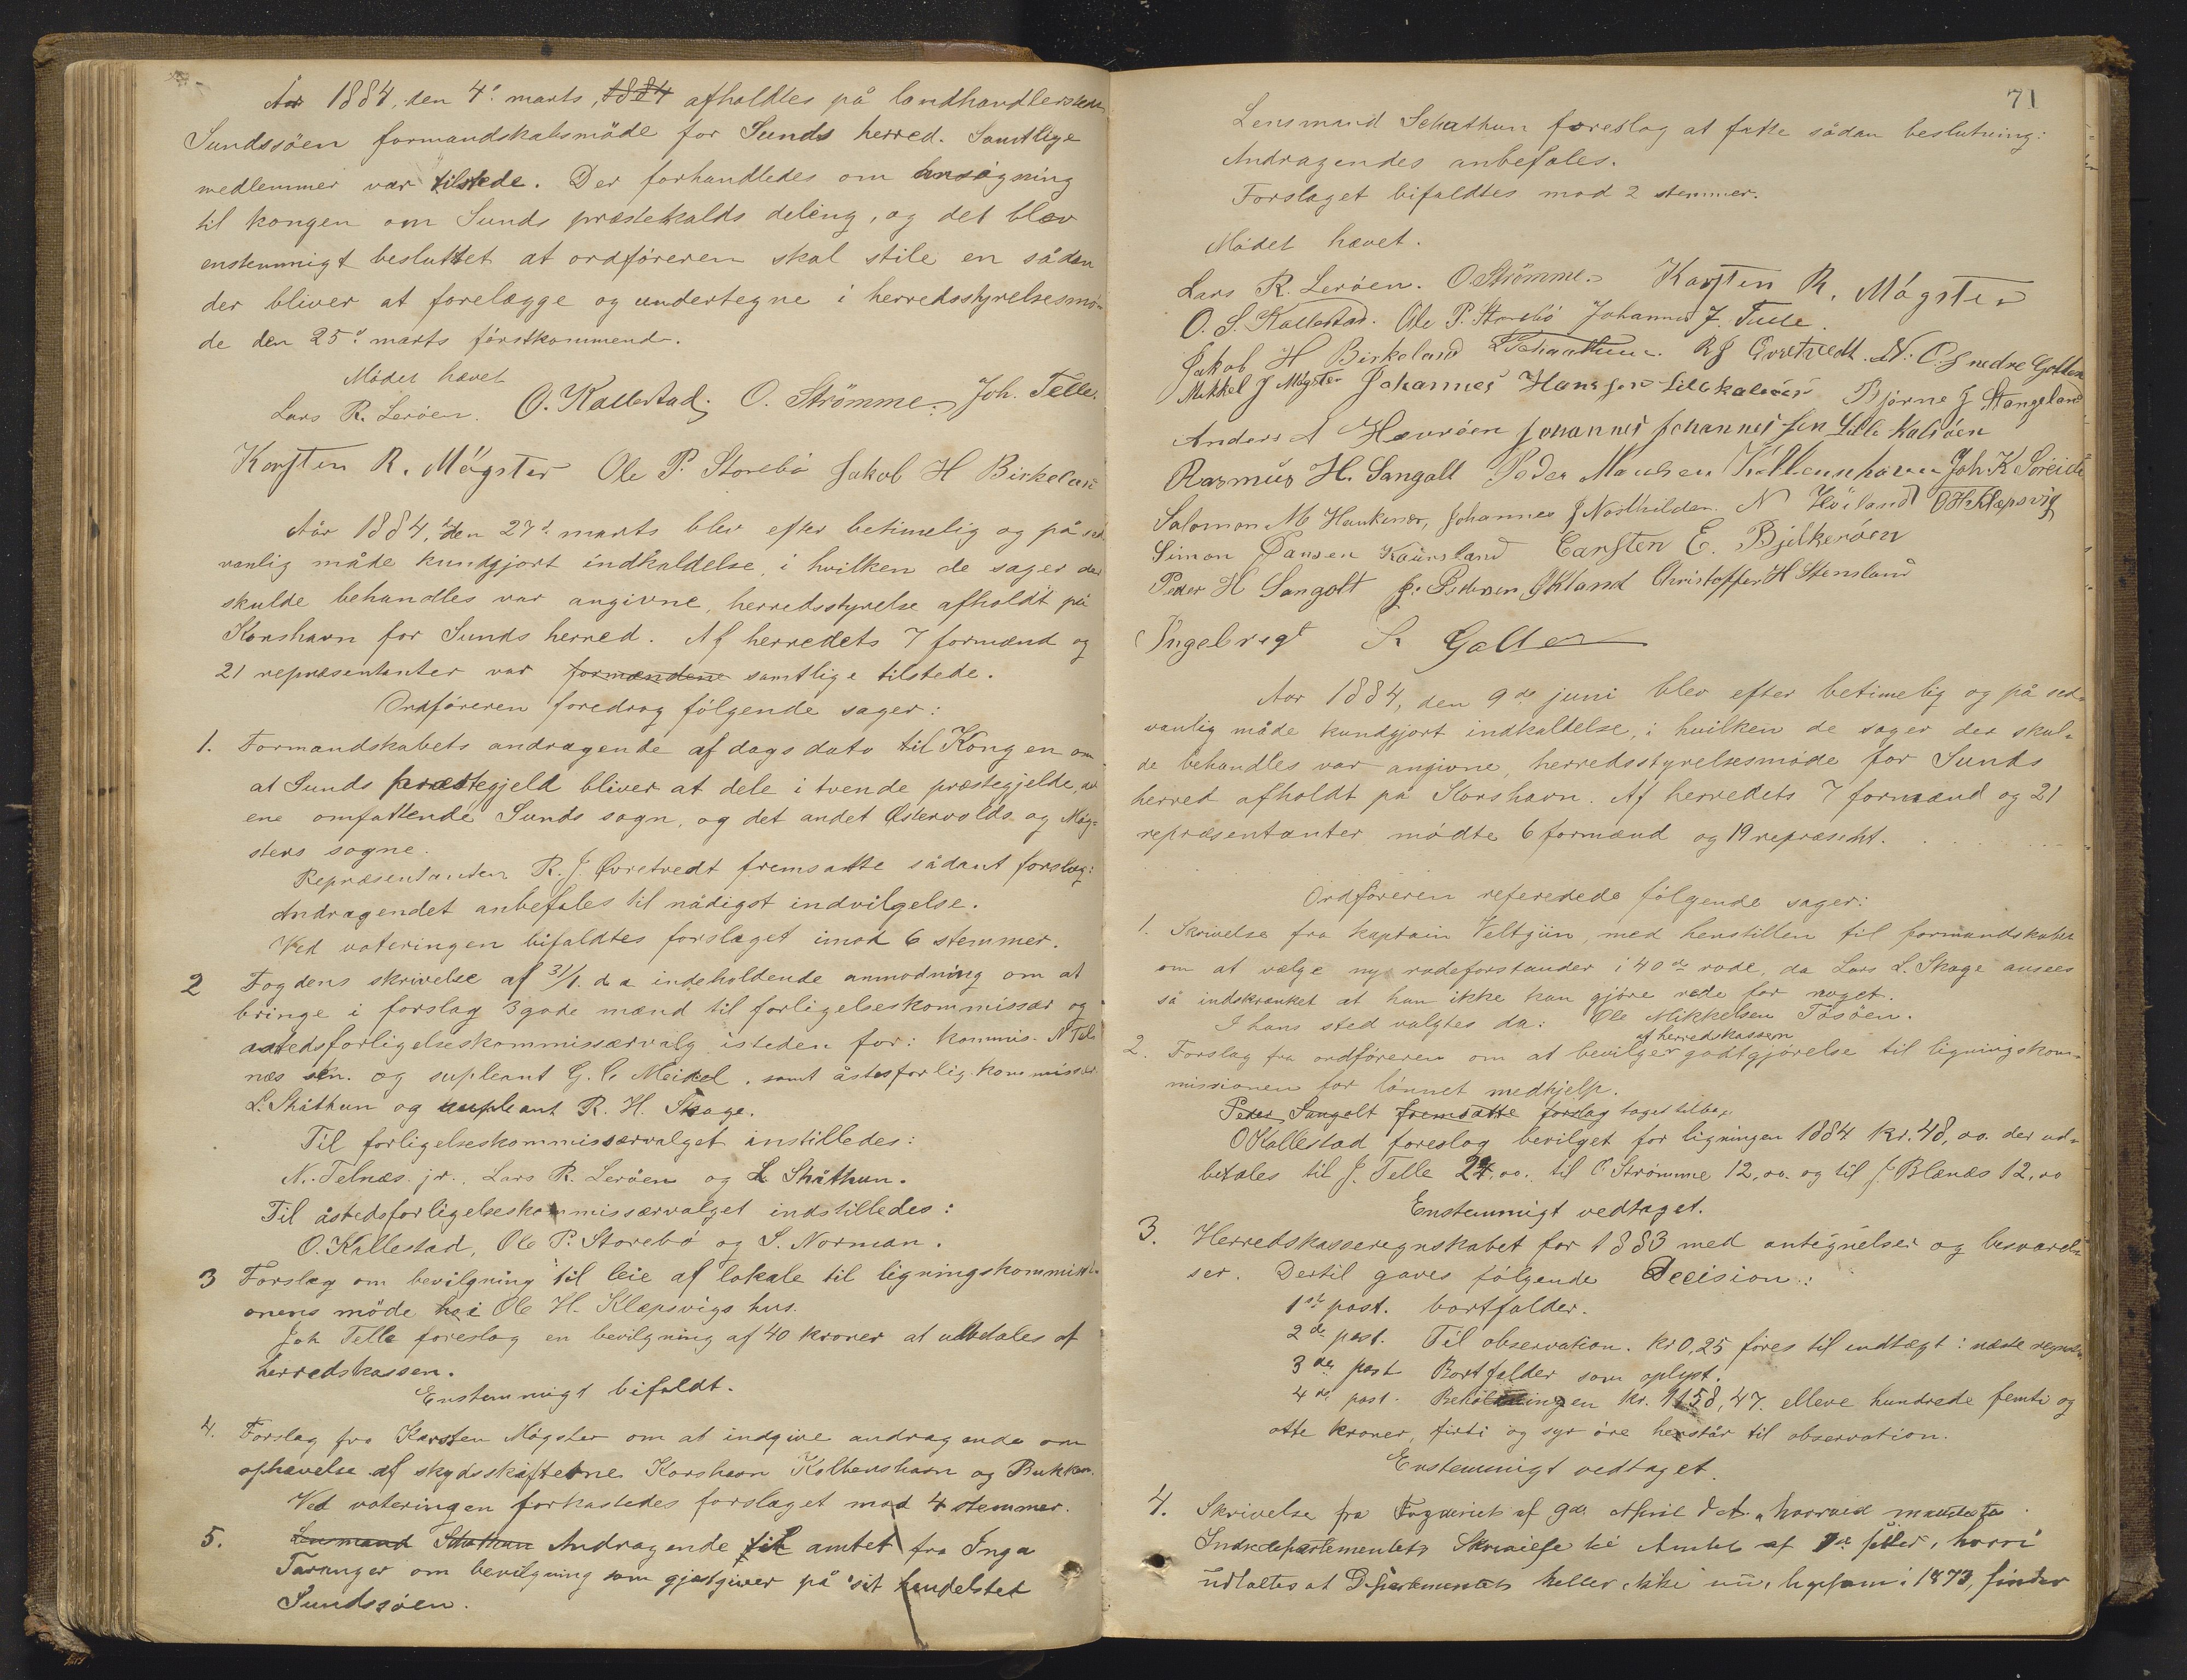 Aar 1884, den 4de marts, 1884 afholdtes på landhandlerstedet
Sundssöen formandskabsmöde for Sunds herred. Samtlige
medlemmer var tilstede. Der forhandledes om ansögning
til kongen om Sunds præstekalds deling, og det blev
enstemmigt besluttet at ordföreren skal stile en sådan
der bliver at forelægge og undertegne i herredsstyrelsesmö-
de den 25de marts förstkommende.
Mödet hævet
Lars R. Leröen. O. Kallestad. O. Strömme. Joh. Telle.
Karsten R. Mögster Ole P. Storebö Jakob H Birkeland
Aar 1884, den 27de marts blev efter betimelig og på sed
vanlig måde kundgjort indkaldelse, i hvilken de sager der
skulde behandles var angivne, herredsstyrelse afholdt på
Korshavn for Sunds herred. Af herredets 7 formænd og
21 repræsentanter var formændene samtlige tilstede.
Ordföreren foredrog fölgende sager:
1. Formandskabets andragende af dags dato til Kongen om
at Sunds præstegjeld bliver at dele i tvende præstegjelde, det
ene omfattende Sunds sogn, og det andet Östervolds og Mög-
sters sogne.
Repræsentanten R. J. Övretvedt fremsatte sådant forslag:
Andragendet anbefales til nådigst indvilgelse.
Ved voteringen bifaldtes forslaget imod 6 stemmer.
2 Fogdens skrivelse af 31/1. d. a indeholdende anmodning om at
bringe i forslag 3 gode mænd til forligelseskommissær og
aastedsforligelseskommissærvalg isteden for: kommis. N Tel
næs sen. og supleant G. C. Meidel, samt åstedsforlig. kommissær
L. Skåthun og supleant R. H. Skage.
Til forligelseskommissærvalget instilledes:
N. Telnæs jr., Lars R. Leröen og L Skåthun.
Til åstedsforligelseskommissærvalget indstilledes:
O. Kallestad, Ole P. Storebö og S. Norman.
3 Forslag om bevilgning til leie af lokale til ligningskommissi-
onens möde i Ole H. Klæpsvigs hus.
Joh Telle foreslog en bevilgning af 40 kroner at udbetales af
herredskassen.
Enstemmigt bifaldt.
4. Forslag fra Karsten Mögster om at indgive andragende om
ophævelse af skydsskifterne Korshavn Kolbenshavn og Bukken.
Ved voteringen forkastedes forslaget mod 4 stemmer.
5. Lensmand Skathun Andragende til amtet fra Inga
Taranger om bevilgning som gjæstgiver på sit handelsted
Sundssöen.
71
Lensmand Schathun foreslog at fatte sådan beslutning:
Andragendes anbefales.
Forslaget bifaldtes mod 2 stemmer.
Mödet hævet.
Lars R. Leröen. O Strömme. Karsten R. Mögster
O. S. Kallestad. Ole P. Storebö Johannes J. Telle.
Jakob H Birkeland L Schaathun. R J Övretvedt. N. O. J nedre Golten
Mikkel J Mögster Johannes Hansen Lillekalsöen Bjørne J Stangeland
Anders A Havröen Johannes Johannes sen Lille Kalsöen
Rasmus H. Sangolt Peder Monsen Kolbenshavn Joh. K Söreide
Salomon M Haukenæs, Johannes J Nordhilden. N Höiland O H Klæpsvig
Simon Hansen Kausland Carsten E. Bjelkeröen
Peder H Sangolt J. Pedersen Økland Christoffer H Stensland
Ingebrigt S Golten
Aar 1884, den 9de juni blev efter betimelig og på sed-
vanlig måde kundgjort indkaldelse, i hvilken de sager der skul-
de behandles var angivne, herredsstyrelsesmöde for Sunds
herred afholdt på Korshavn. Af herredets 7 formænd og 21
repræsentanter mödte 6 formænd og 19 repræsent.
Ordföreren refererede fölgende sager:
1. Skrivelse fra kaptain Veltzin, med henstillen til formandskabet
om at vælge ny rodeforstander i 40de rode, da Lars L. Skage ansees
så indskrænket at han ikke kan gjöre rede for noget.
I hans sted valgtes da: Ole Mikkelsen Tösöen.
af herredskassen
2. Forslag fra ordföreren om at bevilge godtgjörelse til ligningskom-
missionen for lönnet medhjelp.
Peder Sangolt fremsatte forslag taget tilbage
O Kallestad foreslog bevilget for ligningen 1884 kr. 48,00. der ud-
betales til J. Telle 24,00. til O. Strömme 12,00. og til J. Blænæs 12,00
Enstemmigt vedtaget.
3. Herredskasseregnskabet for 1883 med antegnelser og besvarel-
ser. Dertil gaves fölgende Decision:
1ste post. bortfalder.
2de post. Til observation. kr 0,25 föres til indtægt i næste regnsk.
3die post Bortfalder som oplyst.
4de post. Beholdningen kr. 1158,47. elleve hundrede femti og
otte kroner, firti og syv öre henstår til observation.
Enstemmigt vedtaget.
4. Skrivelse fra Fogderiet af 9de April d. A. hvorved
Indredepartementets Skrivelse til Amtet af hvori
udtaltes at Departementet heller ikke nu, ligesom i 1873, finder